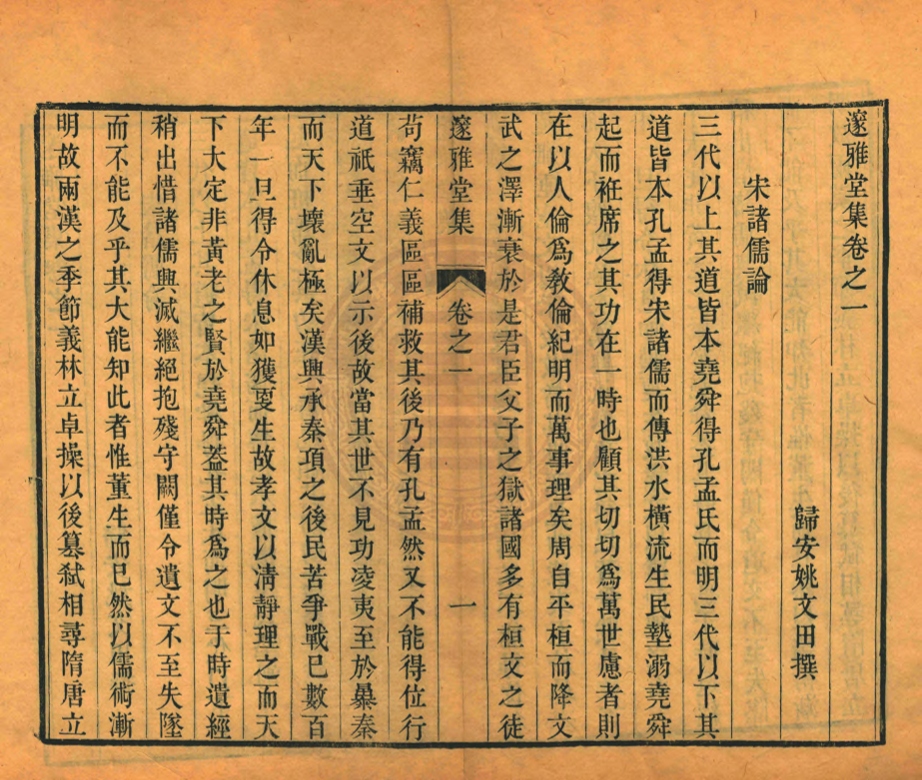 邃雅堂集卷之一
歸安姚文田撰
宋諸儒論
三代以上其道皆本堯舜得孔孟氏而明三代以下其
道皆本孔孟得宋諸儒而傳洪水橫流生民墊溺堯舜
起而袵席之其功在一時也顧其切切爲萬世慮者則
在以人倫爲敎倫紀明而萬事理矣周自平桓而降文
武之澤漸衰於是君臣父子之獄諸國多有桓文之徒
邃雅堂集
卷之一
一
苟竊仁義區區補救其後乃有孔孟然又不能得位行
道祇垂空文以示後故當其世不見功凌夷至於暴秦
而天下壞亂極矣漢興承秦項之後民苦爭戰已數百
年一旦得令休息如獲更生故孝文以淸靜理之而天
下大定非黃老之賢於堯舜葢其時爲之也于時遺經
稍出惜諸儒興滅繼絕抱殘守闕僅令遺文不至失墜
而不能及乎其大能知此者惟董生而已然以儒術漸
明故兩漢之季節義林立卓操以後簒弒相尋隋唐立